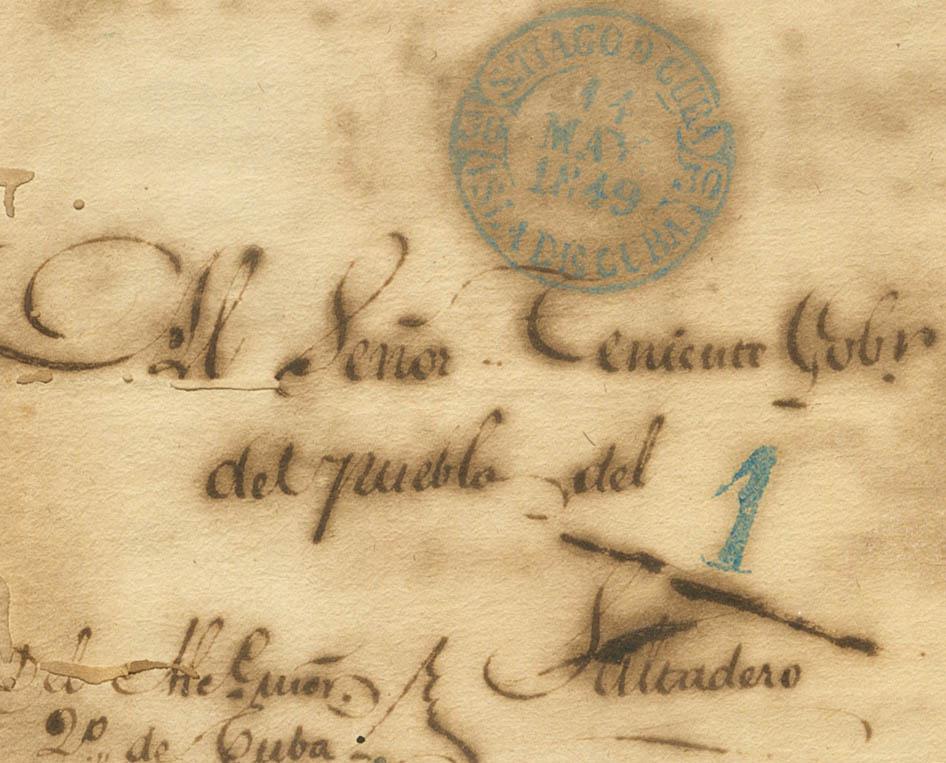 S.TIAGO D CUBA
14
MAY
1849
YSLA DE CUBA
Al Señor Teniente Gobr
del pueblo del
1
Saltadero
Del Alc
2º de Cuba